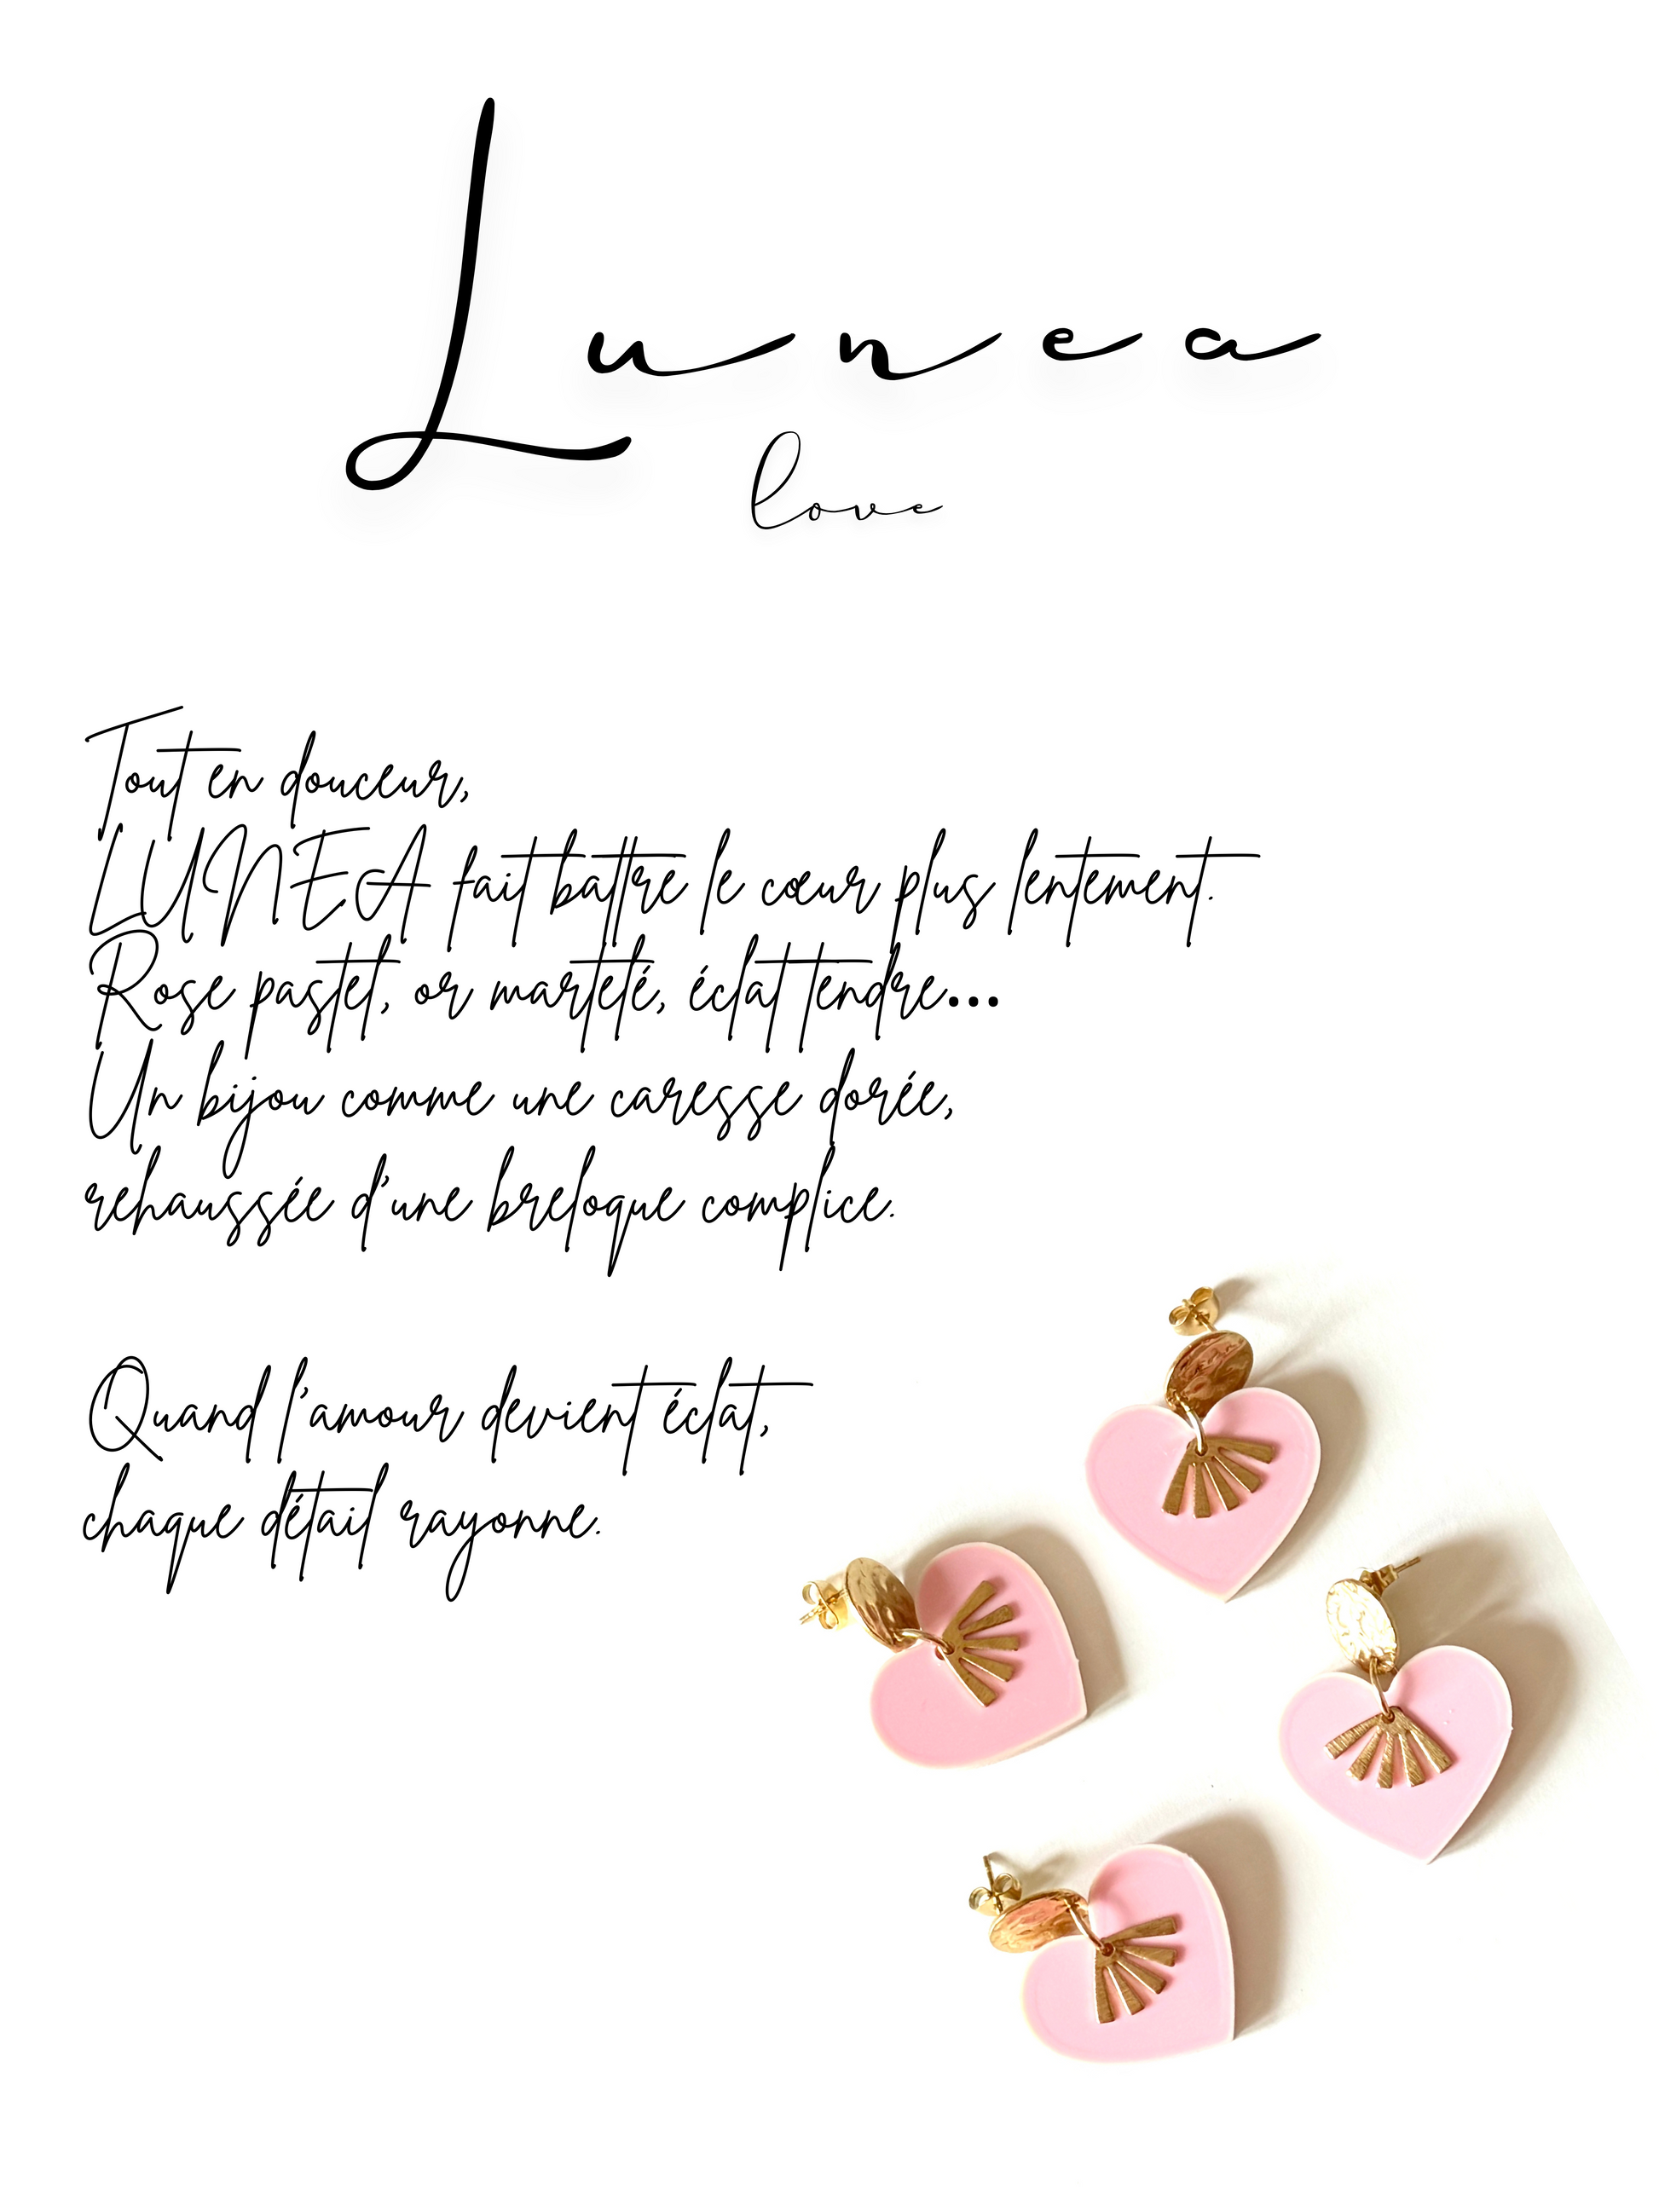 Lunea
love
Tout en douceur,
LUNEA fait battre le cœur plus lentement.
Rose pastel, or martelé, éclat tendre...
Un bijou comme une caresse dorée,
rehaussée d'une breloque complice.
Quand l'amour devient éclat,
chaque détail rayonne.